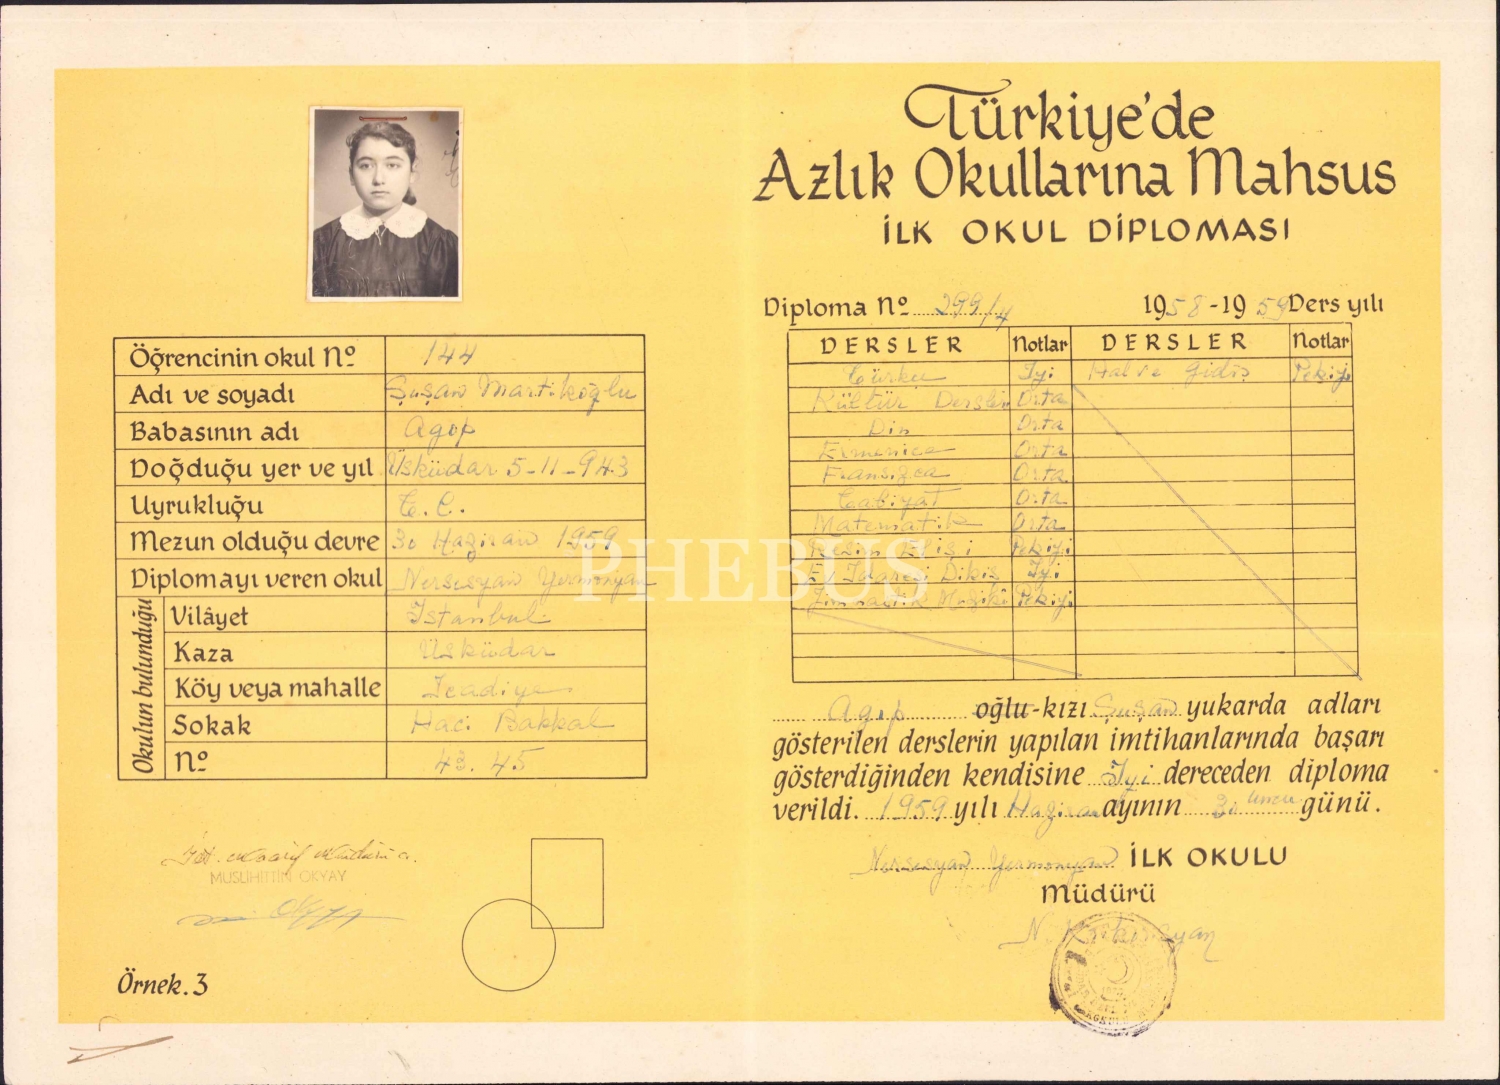 Öğrencinin okul Nº 144
Adı ve soyadı Şuşan Martikoğlu
Babasının adı Agop
Doğduğu yer ve yıl Üsküdar 5-11-943
Uyrukluğu T.C.
Mezun olduğu devre 30 Haziran 1959
Diplomayı veren okul Nersesyan Yermonyan
Okulun bulunduğu
Vilâyet İstanbul
Kaza Üsküdar
Köy veya mahalle İcadiye
Sokak Hacı Bakkal
Nº 43.45
MUSLİHİTTİN OKYAY
Örnek.3
PHEBUS
Türkiye'de
Azlık Okullarına Mahsus
İLK OKUL DİPLOMASI
Diploma Nº 299/4 1958-1959 Ders yılı
DERSLER Notlar DERSLER Notlar
Türkçe İyi Hal ve Gidiş Pekiyi
Kültür Dersleri Orta
Din Orta
Ermenice Orta
Fransızca Orta
Tabiyat Orta
Matematik Orta
Resim Elişi Pekiyi
Ev İdaresi Dikiş İyi
Jimnastik Müzik Pekiyi
Agop oğlu-kızı Şuşan yukarda adları
gösterilen derslerin yapılan imtihanlarında başarı
gösterdiğinden kendisine İyi dereceden diploma
verildi. 1959 yılı Haziran ayının 30 uncu günü.
Nersesyan Yermonyan İLK OKULU
Müdürü